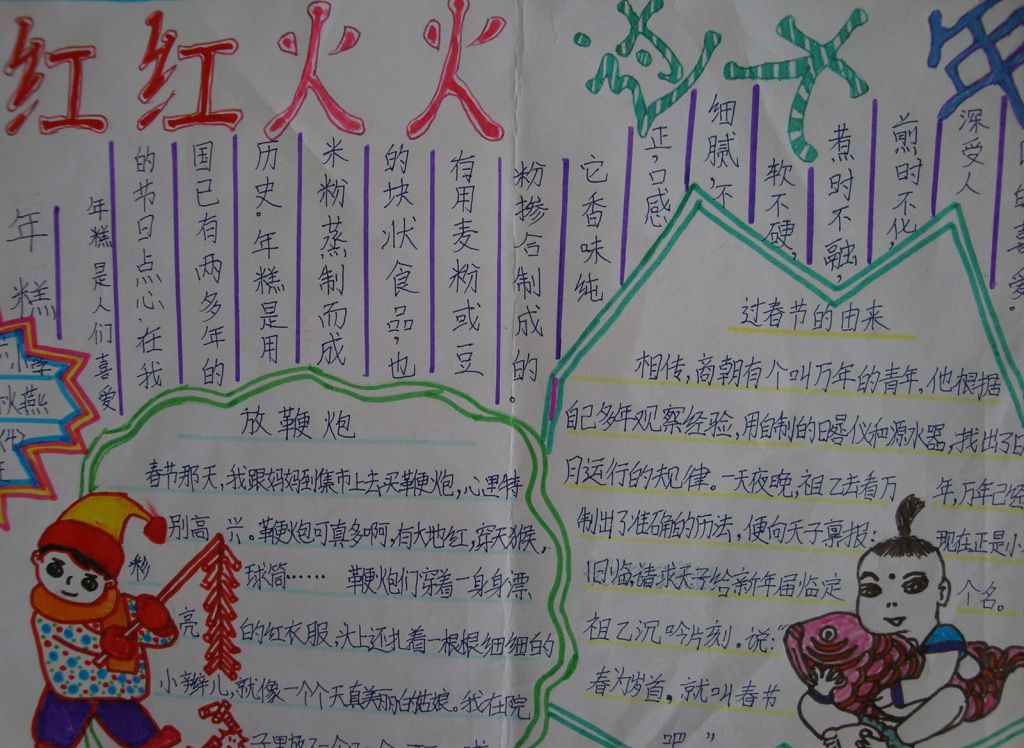 红红火火过大年
年糕
年糕是人们喜爱
的节日点心在我
国已有两多年的
历史。年糕是用
米粉蒸制而成
的块状食品,也
有用麦粉或豆
粉掺合制成的。
它香味纯
正,口感
细腻,不
软不硬,
煮时不融,
煎时不化,
深受人
的喜爱。
小学
燕
放鞭炮
春节那天,我跟妈妈到集市上去买鞭炮,心里特
别高兴。鞭炮可真多啊,有大地红,穿天猴,
彩球筒…… 鞭炮们穿着一身身漂
亮的红衣服,头上还扎着一根根细细的
小辫儿,就像一个个天真美丽的姑娘。我在院
过春节的由来
相传,商朝有个叫万年的青年,他根据
自己多年观察经验,用自制的日晷仪和漏水器,找出了日
月运行的规律。一天夜晚,祖乙去看万年,万年已经
制出了准确的历法,便向天子禀报:现在正是小
旧临请求天子给新年届临定个名。
祖乙沉吟片刻。说:“
春为岁首,就叫春节
吧”